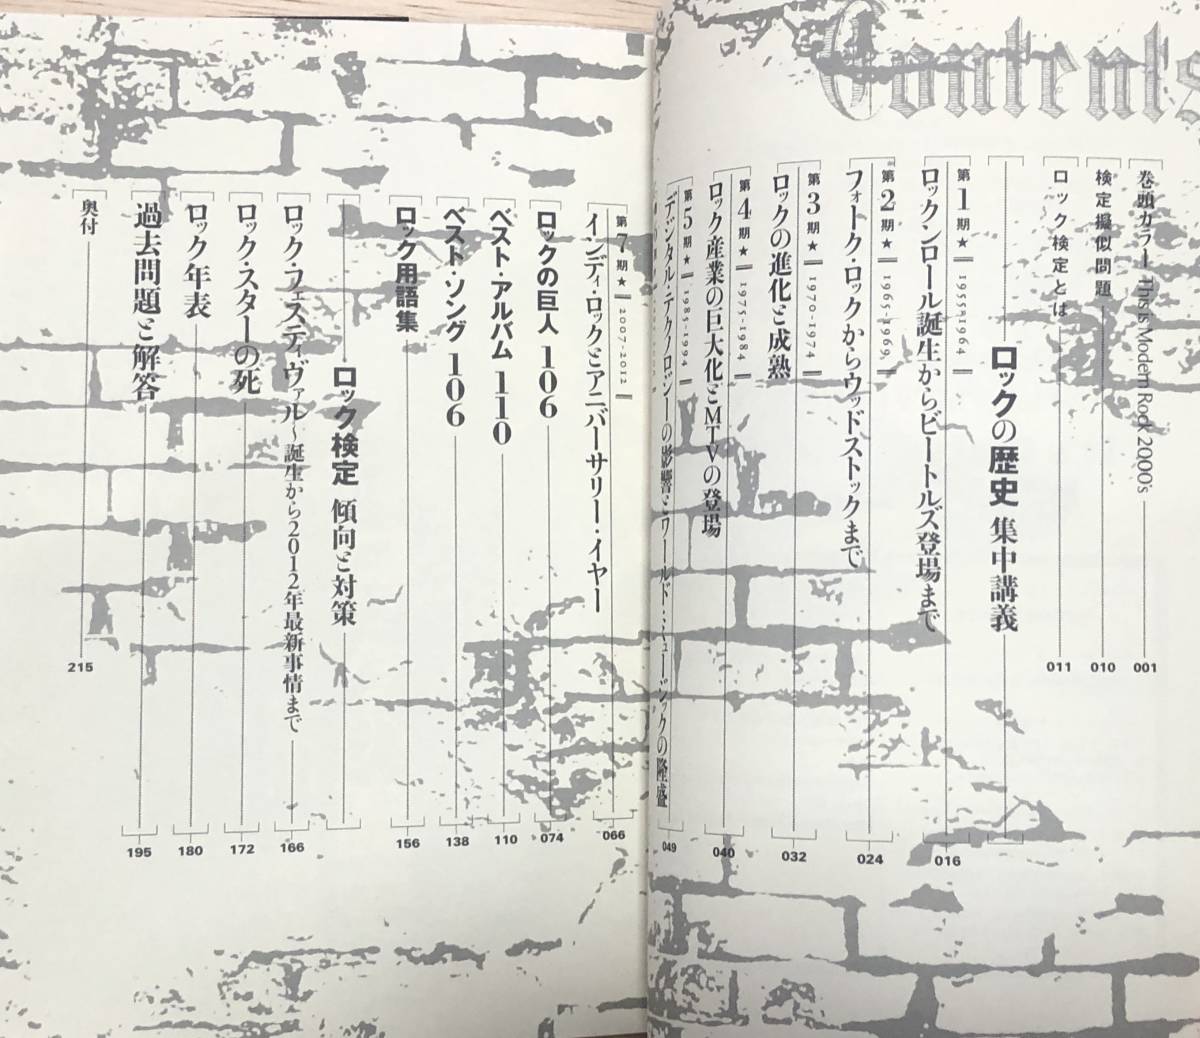 Contents
巻頭カラー This is Modern Rock 2000's 001
検定擬似問題 010
ロック検定とは 011
ロックの歴史 集中講義
第1期★1955-1964
ロックンロール誕生からビートルズ登場まで 016
第2期★1965-1969
フォーク・ロックからウッドストックまで 024
第3期★1970-1974
ロックの進化と成熟 032
第4期★1975-1984
ロック産業の巨大化とMTVの登場 040
第5期★1985-1994
デジタル・テクノロジーの影響とワールド・ミュージックの隆盛 049
第7期★2007-2012
インディ・ロックとアニバーサリー・イヤー 066
ロックの巨人 106 074
ベスト・アルバム 110 110
ベスト・ソング 106 138
ロック用語集 156
ロック検定 傾向と対策
ロック・フェスティヴァル〜誕生から2012年最新事情まで 166
ロック・スターの死 172
ロック年表 180
過去問題と解答 195
奥付 215